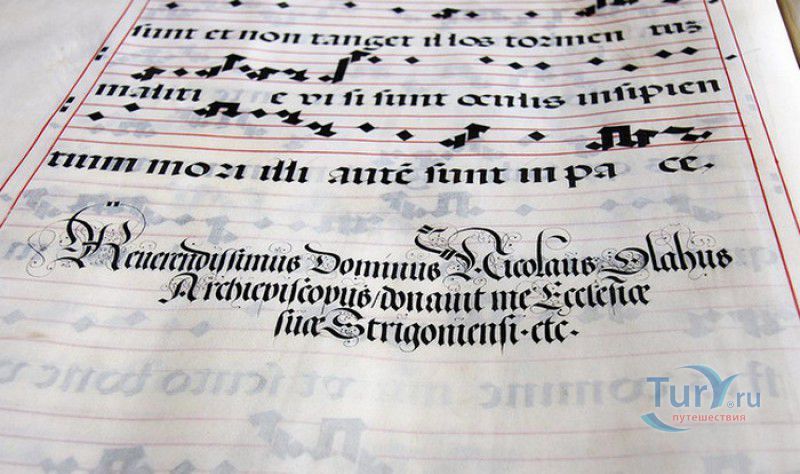 sunt et non tanget illos tormen tuz
maliti e vi si sunt oculis insipien
tium mori illi autē sunt in pa ce.
Reuerendissimus Dominus Nicolaus Olahus
Archiepiscopus/donauit me Ecclesiæ
suæ Strigoniensi·etc·
TurY.ru
путешествия